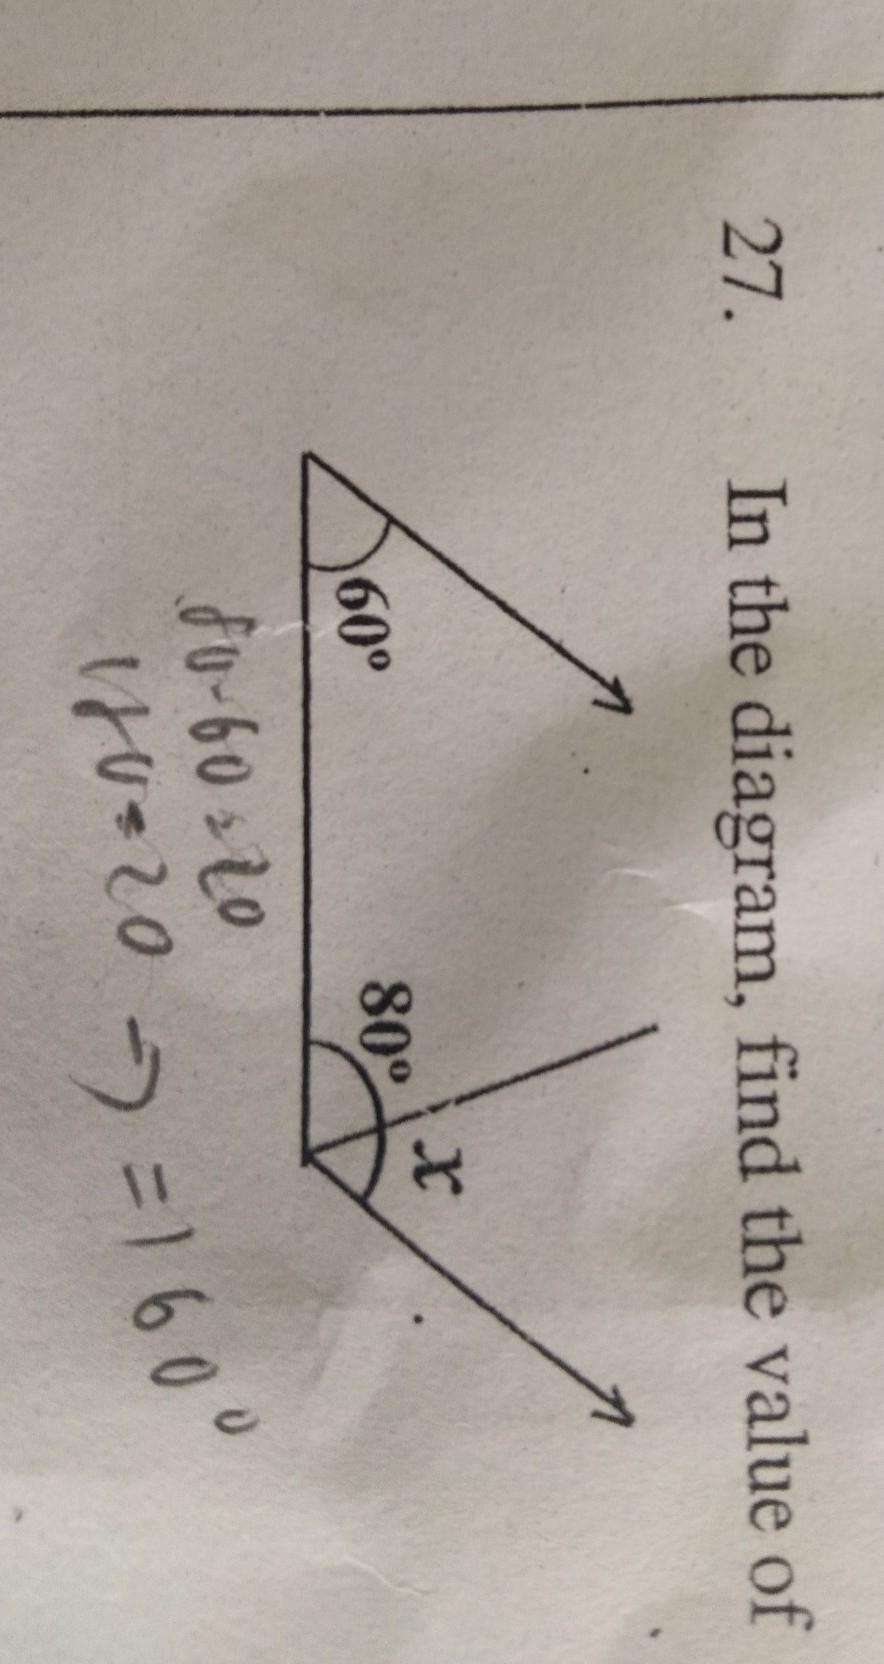 27. In the diagram, find the value of
60°
80°
x
80-60=20
180-20 → =160°